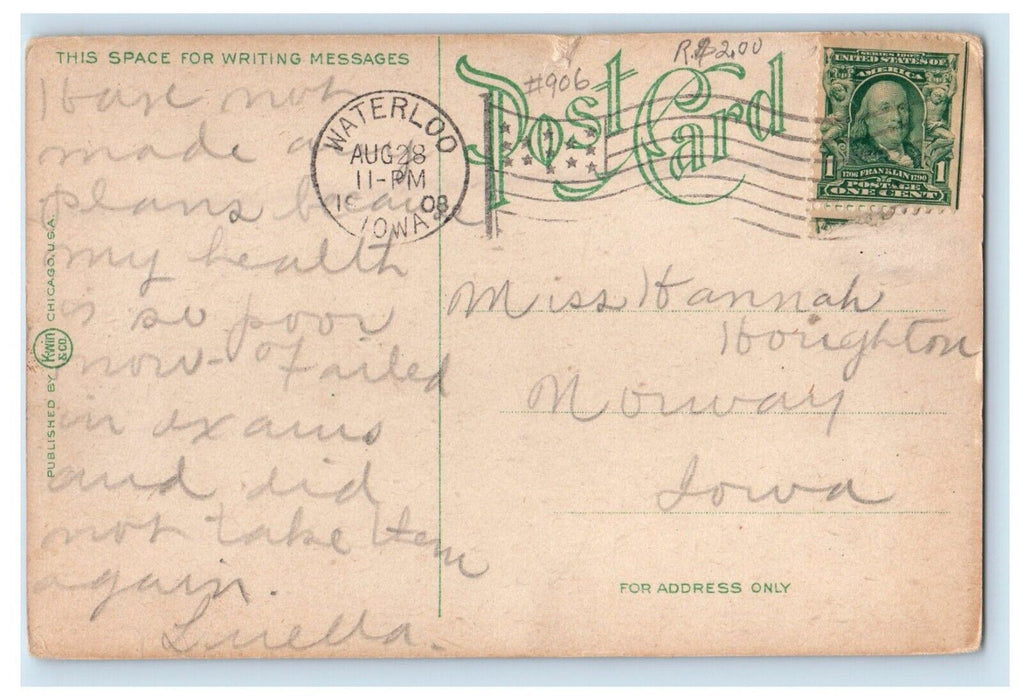 THIS SPACE FOR WRITING MESSAGES
Post Card
#906
R.$2.00
WATERLOO
AUG 28
11-PM
19 08
IOWA
SERIES 1902
UNITED STATES OF
AMERICA
1 1706 FRANKLIN 1790 1
POSTAGE
ONE CENT
I have not
made
plans because
my health
is so poor
now- I failed
in exams
and did
not take them
again.
Luella.
Miss Hannah
Houghton
Norway
Iowa
FOR ADDRESS ONLY
PUBLISHED BY Kwin & CO. CHICAGO, U.S.A.